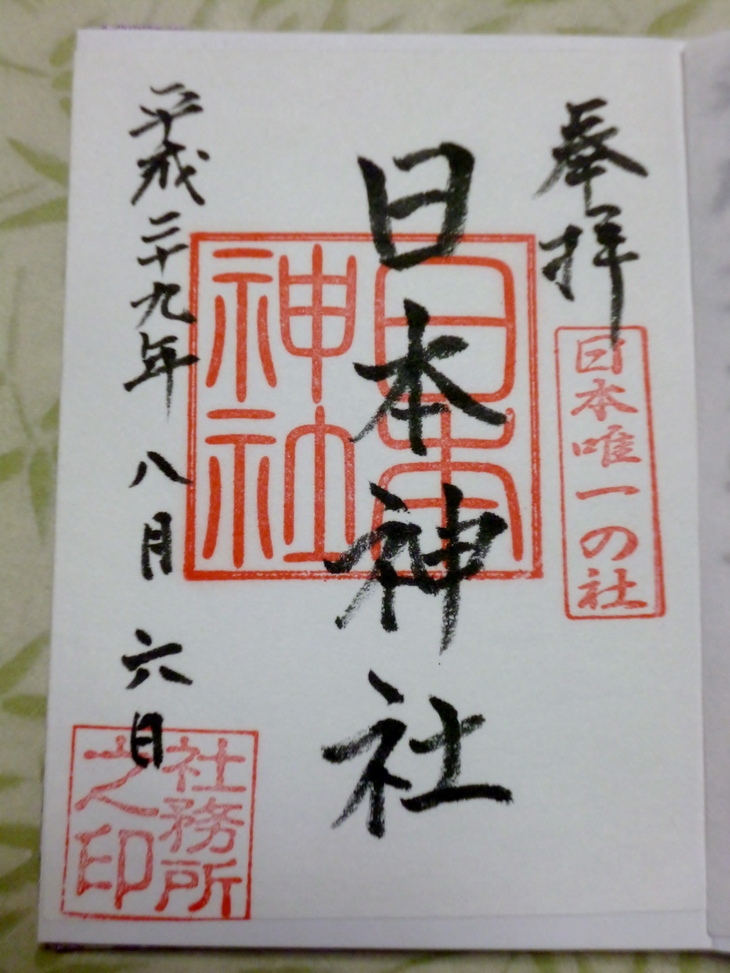 奉拝
日本唯一の社
日本神社
日本神社
平成二十九年 八月 六日
社務所之印